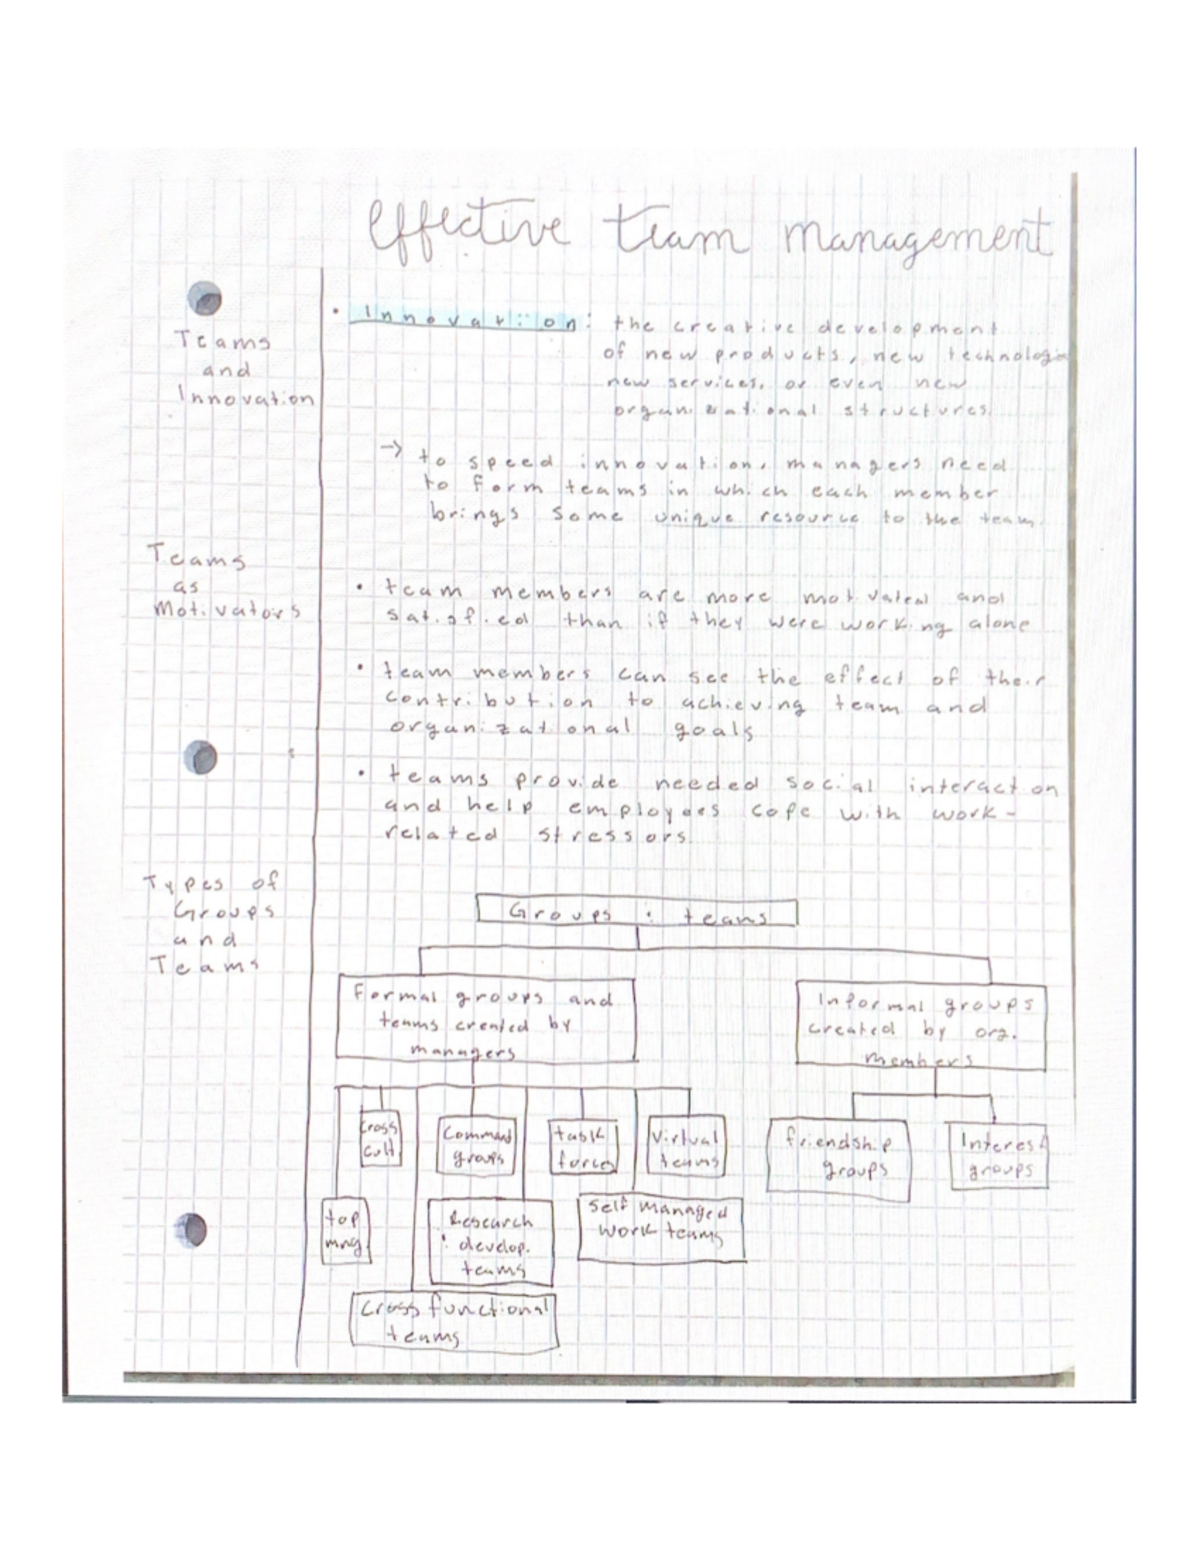 effective team management
Teams
and
Innovation
• Innovation: the creative development
of new products, new technologi
new services, or even new
organizational structures.
→ to speed innovation, managers need
to form teams in which each member
brings some unique resource to the team.
Teams
as
Motivators
• team members are more motivated and
satisfied than if they were working alone
• team members can see the effect of their
contribution to achieving team and
organizational goals
• teams provide needed social interaction
and help employees cope with work-
related stressors.
Types of
Groups
and
Teams
Groups : teams
Formal groups and
teams created by
managers
Informal groups
created by org.
members
Cross
cult.
Command
groups
task
forces
Virtual
teams
friendship
groups
Interest
groups
top
mng.
Research
: develop.
teams
Self managed
work teams
Cross functional
teams